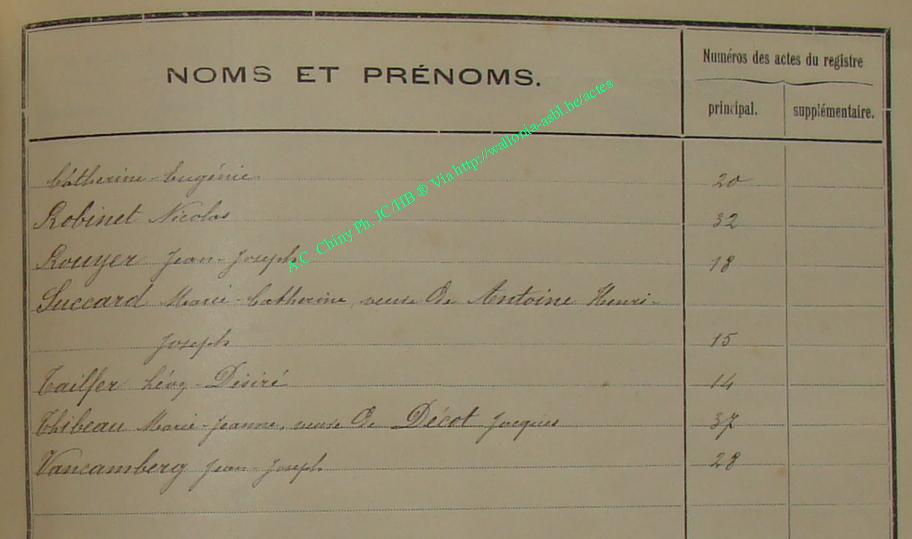 NOMS ET PRÉNOMS.
Numéros des actes du registre
principal. supplémentaire.
A.C. Chiny Ph. JC/HB ® Via http://wallonia-asbl.be/actes
Catherine-Eugénie 20
Robinet Nicolas 32
Rouyer Jean-Joseph 18
Succard Marie-Catherine, veuve de Antoine Henri-
Joseph 15
Tailfer Désiré 14
Thibeau Marie-Jeanne, veuve de Décot Jacques 37
Vancamberg Jean-Joseph 28